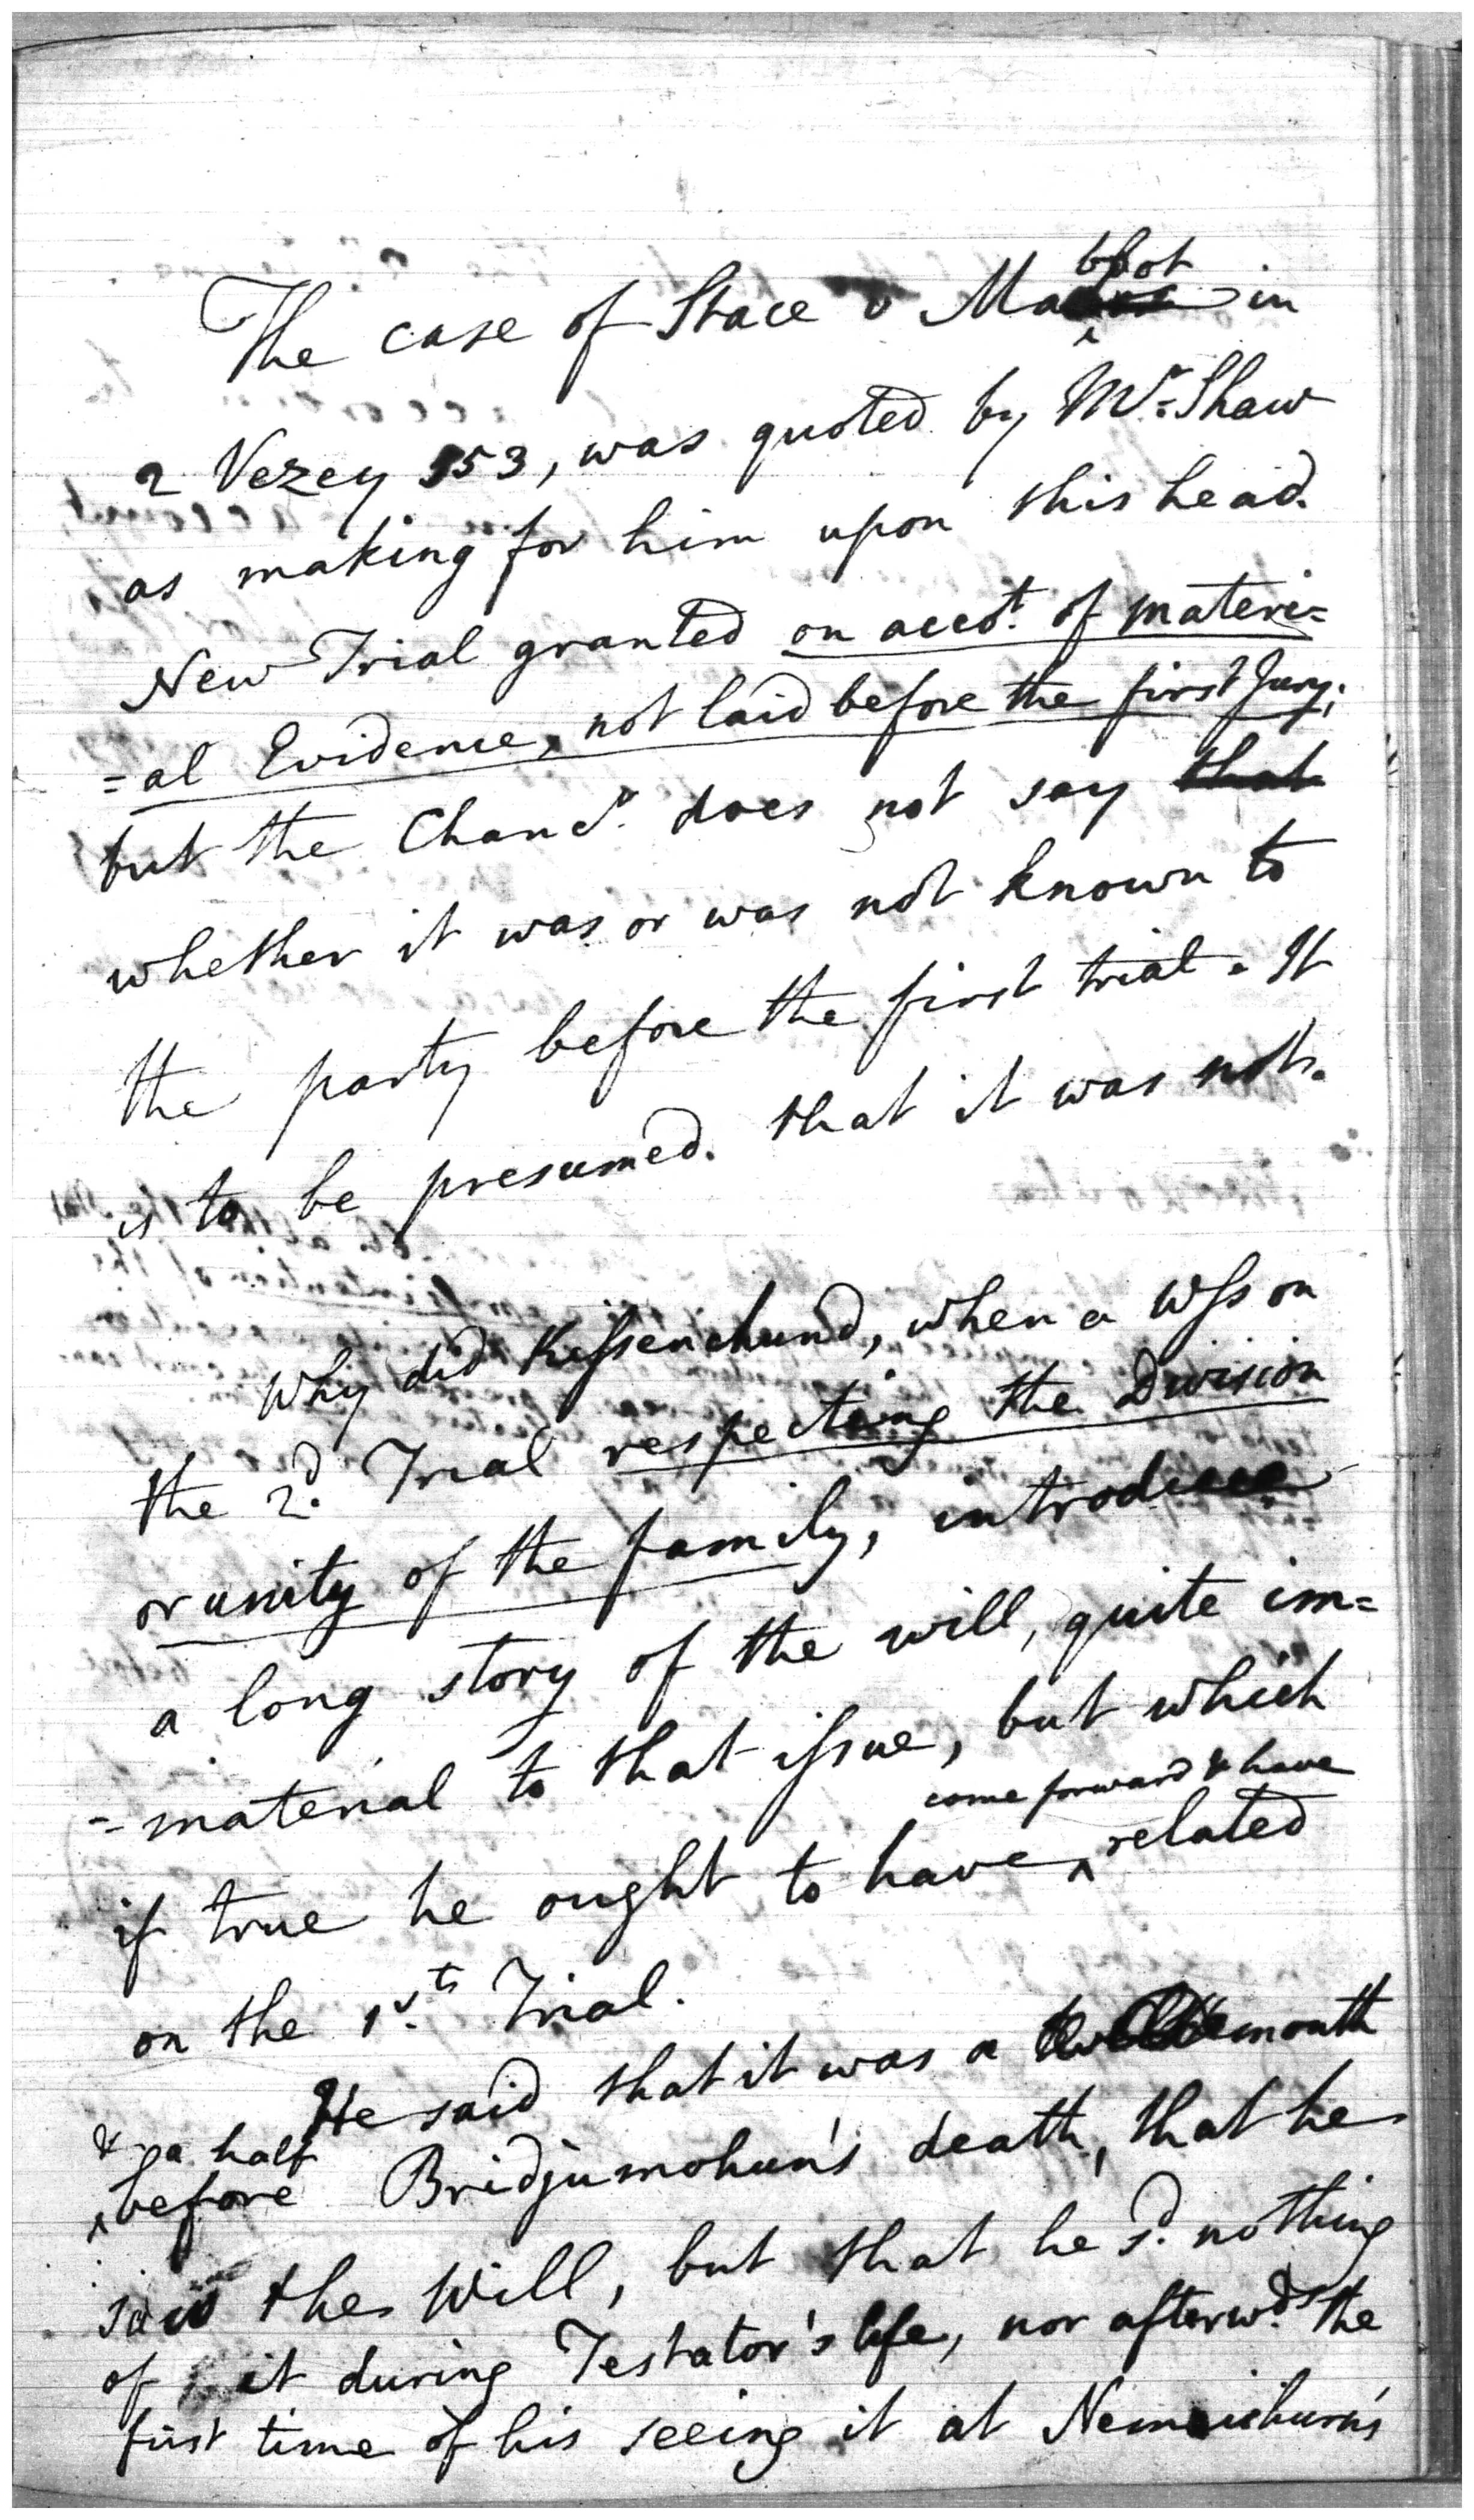 The case of Stace v Mabbot in
2 Vezey 553, was quoted by Mr. Shaw
as making for him upon this head.
New Trial granted on accot. of materi=
=al Evidence, not laid before the first Jury;
but the Chancr. does not say that
whether it was or was not known to
the party before the first trial. It
is to be presumed. that it was not.
Why did Kissenchund, when a Wss on
the 2d. Trial respecting the Division
or unity of the family, introduce
a long story of the will, quite im=
=material to that issue, but which
come forward & have
if true he ought to have related
on the 1st. Trial.
He said that it was a month
& a half
before Bridjumohun's death, that he
saw the Will, but that he sd. nothing
of it during Testator's life, nor afterwds. the
first time of his seeing it at